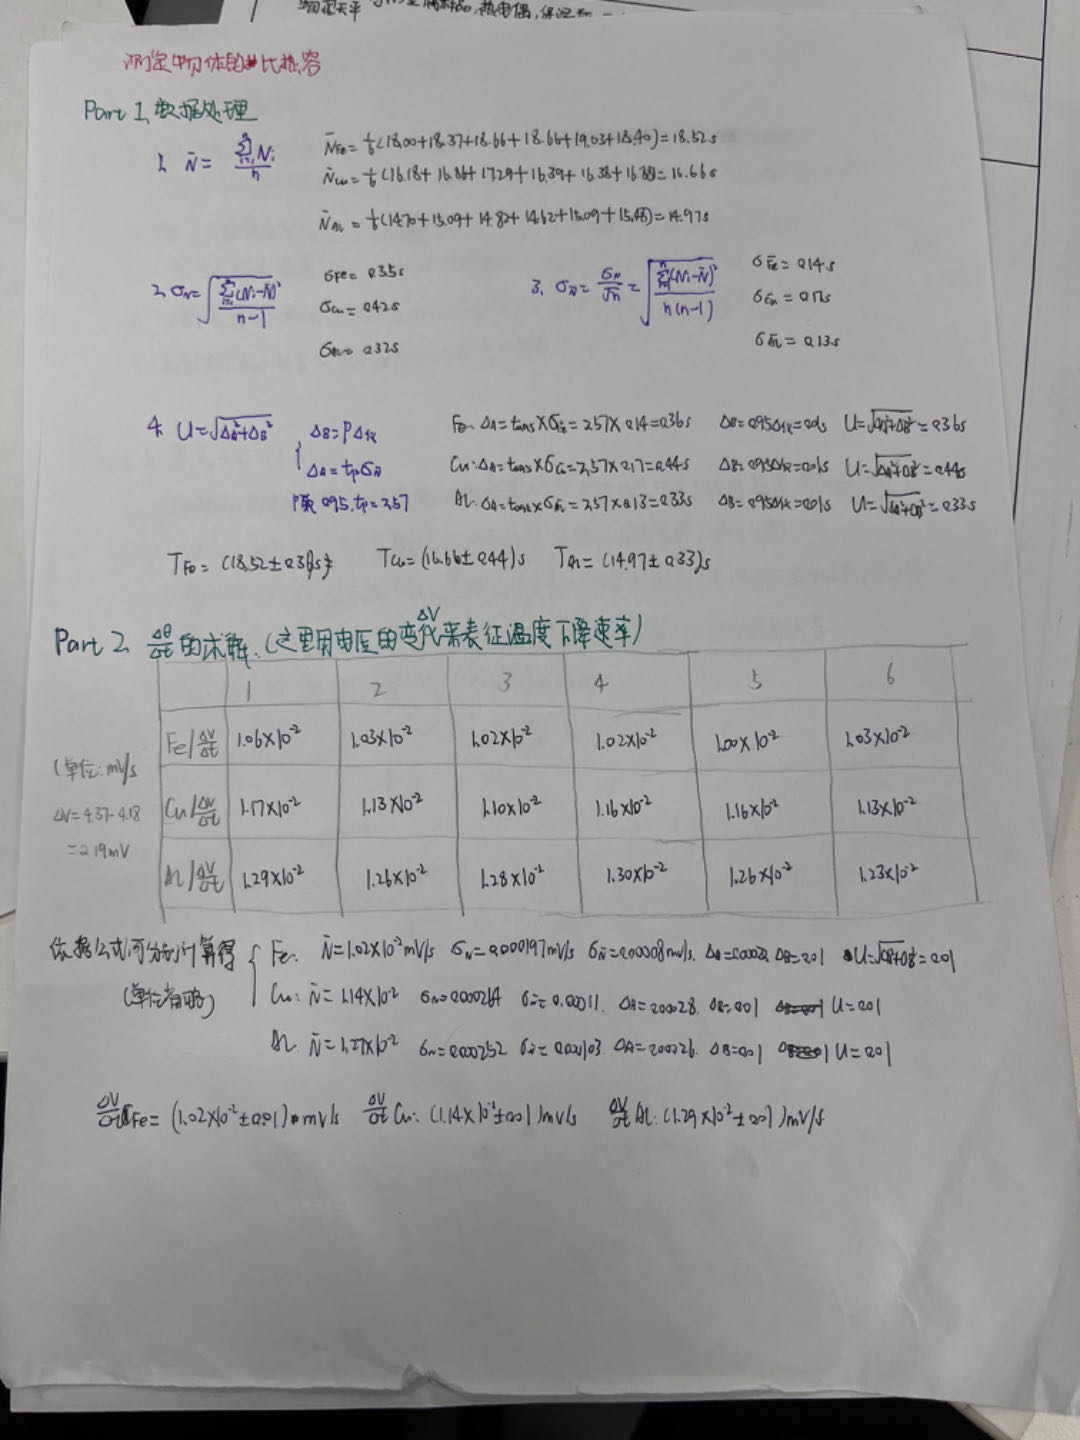 物理天平
热电偶,保温
测定物体的比热容
Part 1、数据处理
1、 N̄ = Σ(i=1→n) Ni / n
N̄Fe = 1/6(18.00+18.37+18.66+18.66+19.03+18.40) = 18.52s
N̄Cu = 1/6(16.18+16.86+17.29+16.39+16.38+16.88) = 16.66s
N̄AL = 1/6(14.70+15.09+14.82+14.62+15.09+15.48) = 14.97s
2、 σN = √(Σ(i=1→n)(Ni-N̄)² / n-1)
σFe = 0.35s
σCu = 0.42s
σAL = 0.32s
3、 σN̄ = σN/√n = √(Σ(i=1→n)(Ni-N̄)² / n(n-1))
σF̄e = 0.14s
σC̄u = 0.17s
σĀL = 0.13s
4. U = √(ΔA²+ΔB²) { ΔB = PΔ仪
ΔA = tpσN̄
P取 0.95, tp = 2.57
Fe: ΔA = t0.95×σF̄e = 2.57×0.14 = 0.36s ΔB = 0.95Δ仪 = 0.01s U = √(ΔA²+ΔB²) = 0.36s
Cu: ΔA = t0.95×σC̄u = 2.57×0.17 = 0.44s ΔB = 0.95Δ仪 = 0.01s U = √(ΔA²+ΔB²) = 0.44s
AL: ΔA = t0.95×σĀL = 2.57×0.13 = 0.33s ΔB = 0.95Δ仪 = 0.01s U = √(ΔA²+ΔB²) = 0.33s
TFe = (18.52±0.36)s TCu = (16.66±0.44)s TAL = (14.97±0.33)s
Part 2、 Δθ/Δt 的求解.(这里用电压的变化ΔV来表征温度下降速率)
1 2 3 4 5 6
Fe/ΔV/Δt 1.06×10⁻² 1.03×10⁻² 1.02×10⁻² 1.02×10⁻² 1.00×10⁻² 1.03×10⁻²
(单位: mV/s
Cu/ΔV/Δt 1.17×10⁻² 1.13×10⁻² 1.10×10⁻² 1.16×10⁻² 1.16×10⁻² 1.13×10⁻²
ΔV = 4.37-4.18
= 0.19mV
AL/ΔV/Δt 1.29×10⁻² 1.26×10⁻² 1.28×10⁻² 1.30×10⁻² 1.26×10⁻² 1.23×10⁻²
依据公式可分别计算得 { Fe: N̄ = 1.02×10⁻²mV/s σN = 0.000197mV/s σN̄ = 0.00008mV/s. ΔB = 0.01 U = √(ΔA²+ΔB²) = 0.01
(单位省略) Cu: N̄ = 1.14×10⁻² σN = 0.000264 σN̄ = 0.00011. ΔA = 0.00028. ΔB = 0.01 U = 0.01
AL: N̄ = 1.27×10⁻² σN = 0.000252 σN̄ = 0.000103. ΔA = 0.00026. ΔB = 0.01 U = 0.01
ΔV/Δt Fe = (1.02×10⁻²±0.01) mV/s ΔV/Δt Cu: (1.14×10⁻²±0.01)mV/s ΔV/Δt AL: (1.29×10⁻²±0.01)mV/s